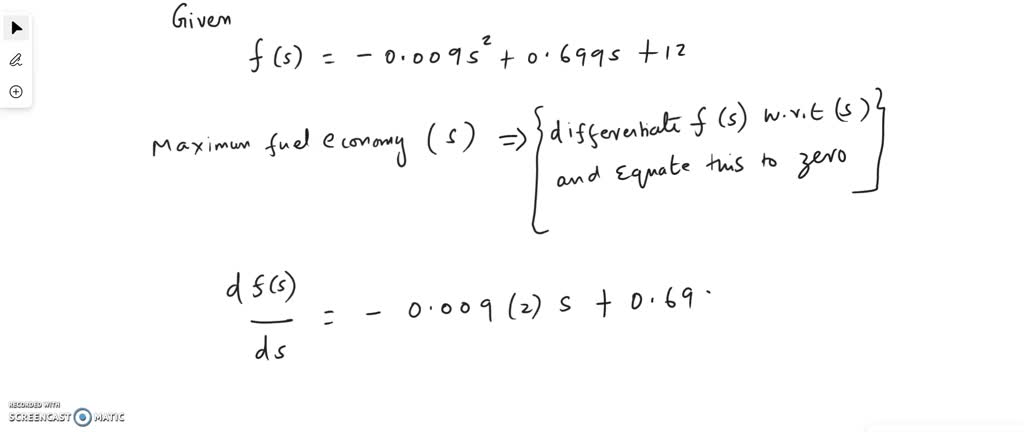 Given
f(s) = - 0.009s² + 0.699s + 12
Maximum fuel economy (s) => {differentiate f(s) w.r.t (s)}
and Equate this to zero
df(s)
ds
= - 0.009 (2) s + 0.69
RECORDED WITH
SCREENCAST O MATIC